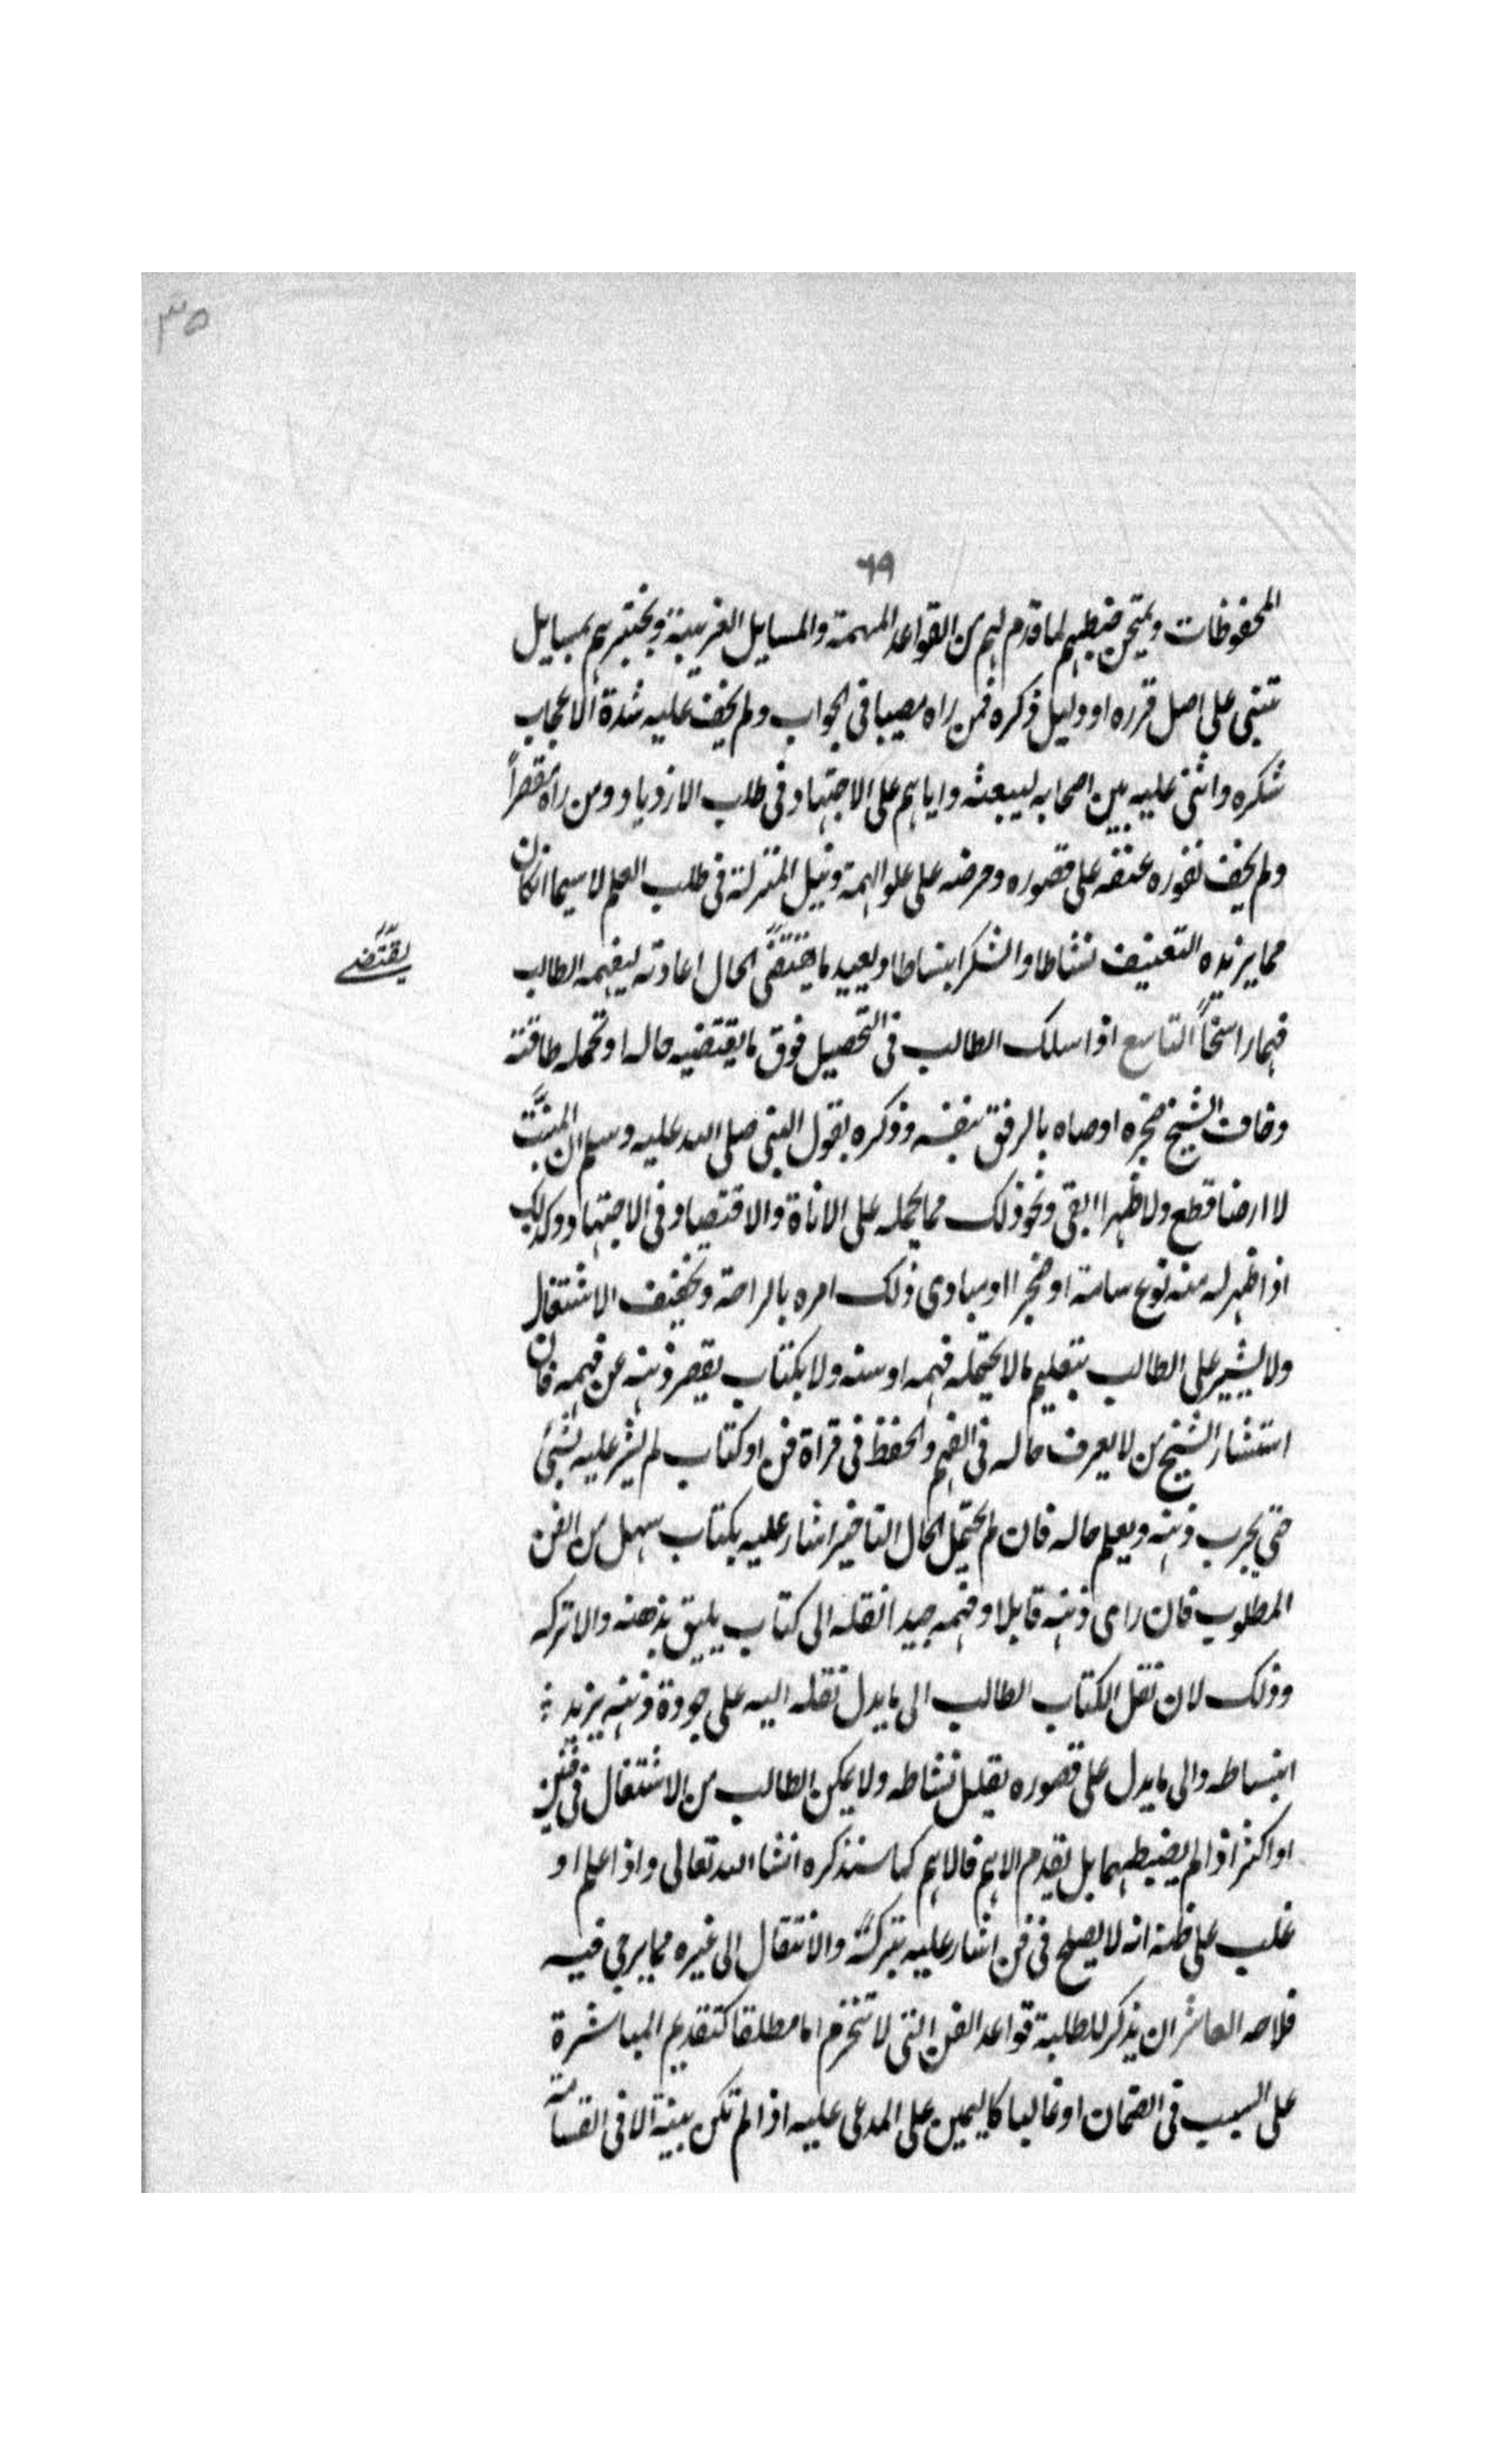 ٣٥
٦٩
المحفوظات ويمتحن ضبطهم لما قدم لهم من القواعد المهمة والمسايل الغريبة ويختبرهم بمسايل
تبتنى على اصل قرره او دليل ذكره فمن راه مصيبا فى الجواب ولم يخف عليه شدة الاعجاب
شكره واثنى عليه بين اصحابه ليبعثه واياهم على الاجتهاد فى طلب الازدياد ومن راه مقصراً
ولم يخف نفوره عنفه على قصوره وحرضه على علو الهمة ونيل المنزلة فى طلب العلم لا سيما ان كان
مما يزيده التعنيف نشاطا والشكر انبساطا ويعيد ما يقتضى الحال اعادته ليفهمه الطالب
يقتضى
فهما راسخاً التاسع اذا سلك الطالب فى التحصيل فوق ما يقتضيه حاله او تحمله طاقته
وخاف الشيخ ضجره اوصاه بالرفق بنفسه وذكره بقول النبى صلى الله عليه وسلم ان المنبت
لا ارضا قطع ولا ظهرا ابقى ونحو ذلك مما يحمله على الاناة والاقتصاد فى الاجتهاد وكذلك
اذا ظهر له منه نوع سامة او ضجرا او مبادى ذلك امره بالراحة وتخفيف الاشتغال
ولا يشير على الطالب بتعليم ما لا يحتمله فهمه او سنه ولا بكتاب يقصر ذهنه عن فهمه فان
استشار الشيخ من لا يعرف حاله فى الفهم والحفظ فى قراة فن او كتاب لم يشر عليه بشئ
حتى يجرب ذهنه ويعلم حاله فان لم يحتمل الحال التاخير اشار عليه بكتاب سهل من الفن
المطلوب فان راى ذهنه قابلا وفهمه جيدا نقله الى كتاب يليق بذهنه والا تركه
وذلك لان نقل الكتاب الطالب الى ما يدل نقله اليه على جودة ذهنه يزيد
انبساطه والى ما يدل على قصوره يقلل نشاطه ولا يمكن الطالب من الاشتغال فى فنين
او اكثر اذا لم يضبطهما بل يقدم الاهم فالاهم كما سنذكره انشا الله تعالى واذا علم او
غلب على ظنه انه لا يصلح فى فن اشار عليه بتركه والانتقال الى غيره مما يرجى فيه
فلاحه العاشر ان يذكر للطلبة قواعد الفن التى لا تنخرم اما مطلقا كتقديم المباشرة
على السبب فى الضمان او غالبا كاليمين على المدعى عليه اذا لم تكن بينة الا فى القسامة